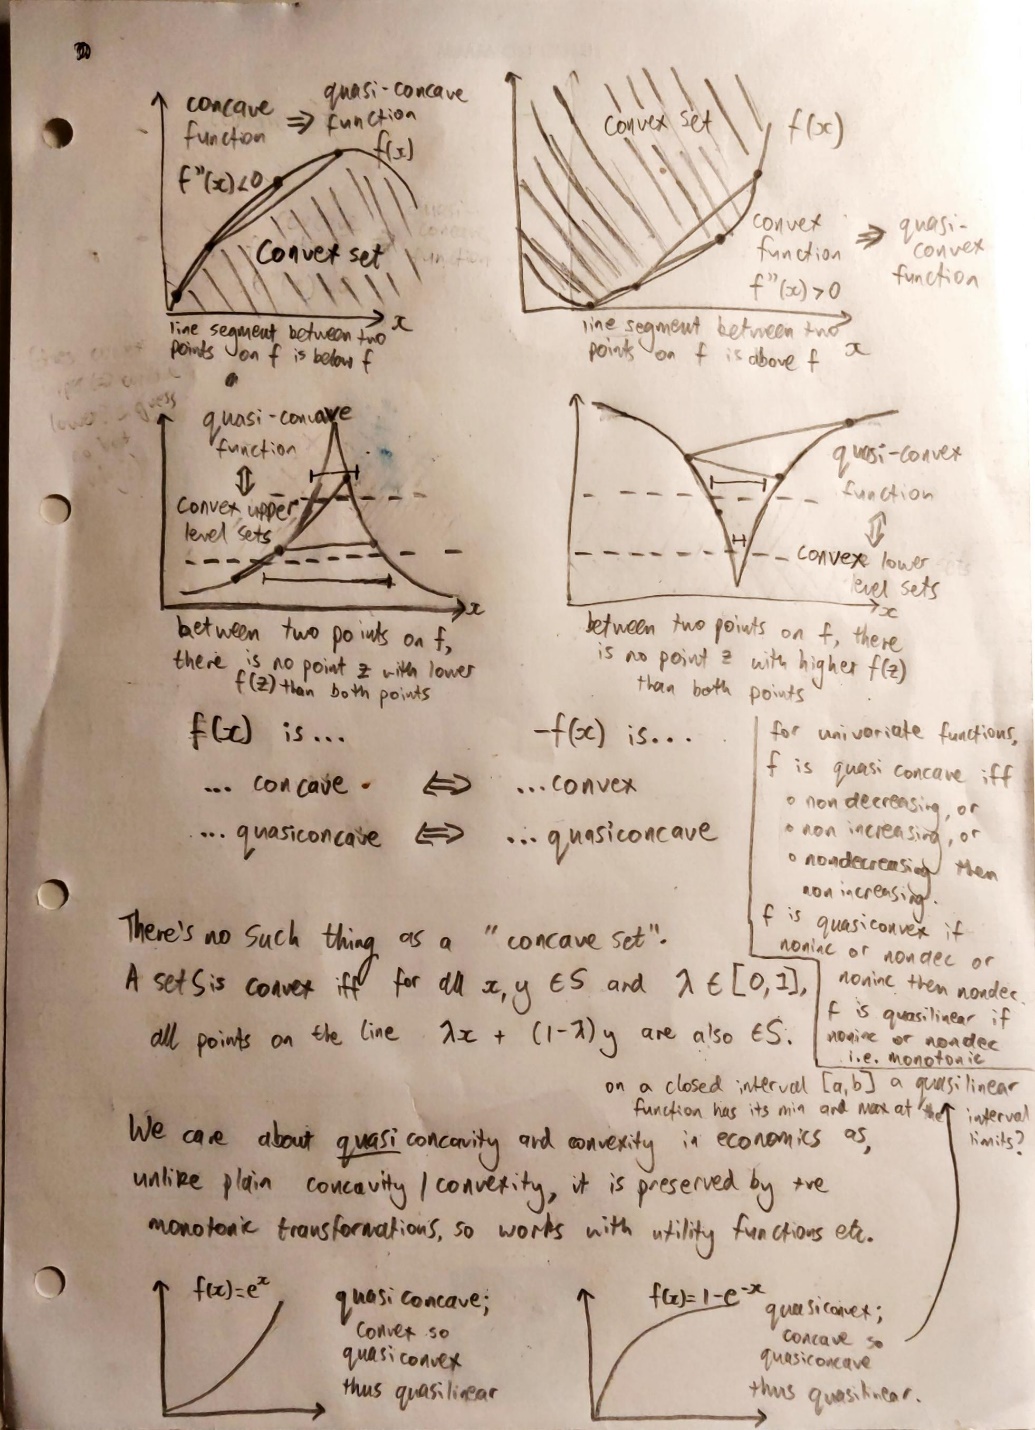 concave function ⇒ quasi-concave function
f''(x)<0
f(x)
Convex set
x
line segment between two
points on f is below f
Convex set
f(x)
convex function ⇒ quasi-convex function
f''(x)>0
line segment between two
points on f is above f
x
quasi-concave
function
⇕
convex upper
level sets
x
between two points on f,
there is no point z with lower
f(z) than both points
quasi-convex
function
⇕
convex lower
level sets
x
between two points on f, there
is no point z with higher f(z)
than both points
f(x) is... -f(x) is...
... concave ⇔ ...convex
... quasiconcave ⇔ ... quasiconcave
for univariate functions,
f is quasi concave iff
o nondecreasing, or
o non increasing, or
o nondecreasing then
non increasing.
f is quasiconvex if
noninc or nondec or
noninc then nondec.
f is quasilinear if
noninc or nondec
i.e. monotonic
There's no such thing as a "concave set".
A set S is convex iff for all x, y ∈ S and λ ∈ [0,1],
all points on the line λx + (1-λ)y are also ∈ S.
on a closed interval [a,b] a quasilinear
function has its min and max at the interval
limits?
We care about quasi concavity and convexity in economics as,
unlike plain concavity/convexity, it is preserved by +ve
monotonic transformations, so works with utility functions etc.
f(x)=e^x
quasi concave;
convex so
quasiconvex
thus quasilinear
f(x)=1-e^-x
quasiconvex;
concave so
quasiconcave
thus quasilinear.